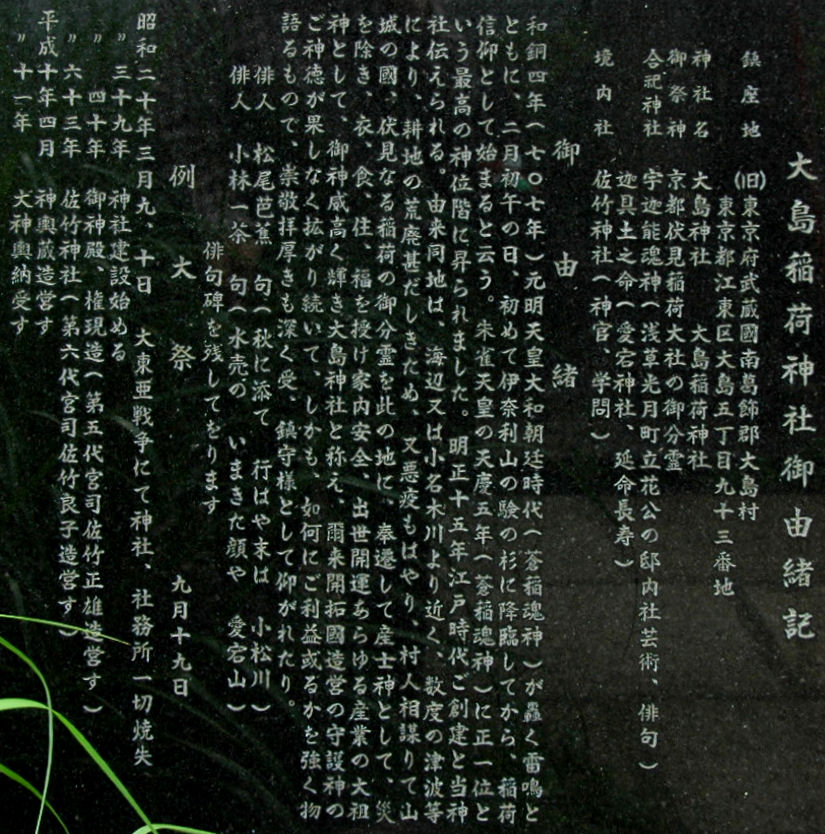 大島稲荷神社御由緒記
鎮座地 (旧)東京府武蔵國南葛飾郡大島村
東京都江東区大島五丁目九十三番地
神社名 大島神社 大島稲荷神社
御祭神 京都伏見稲荷大社の御分霊
合祀神社 宇迹能魂神(浅草光月町立花公の邸内社芸術、俳句)
迹具土之命(愛宕神社、延命長寿)
境内社 佐竹神社(神官、学問)
御由緒
和銅四年(七〇七年)元明天皇大和朝廷時代(蒼稲魂神)が轟く雷鳴と
ともに、二月初午の日、初めて伊奈利山の験の杉に降臨してから、稲荷
信仰として始まると云う。朱雀天皇の天慶五年(蒼稲魂神)に正一位と
いう最高の神位階に昇られました。明正十五年江戸時代ご創建と当神
社伝えられる。由来同地は、海辺又は小名木川より近く、数度の津波等
により、耕地の荒廃甚だしきため、又悪疫もはやり、村人相謀りて山
城の國、伏見なる稲荷の御分霊を此の地に、奉遷して産土神として、災
を除き、衣、食、住、福を授け家内安全、出世開運あらゆる産業の大祖
神として、御神威高く輝き大島神社と称え、爾来開拓國造営の守護神の
ご神徳が果しなく拡がり続いて、しかも、如何にご利益或るかを強く物
語るもので、崇敬拝厚きも深く受、鎮守様として仰がれたり。
俳人 松尾芭蕉 句(秋に添て 行はや末は 小松川)
俳人 小林一茶 句(水売の いまきた顔や 愛宕山)
俳句碑を残しております
例大祭 九月十九日
昭和二十年三月九、十日 大東亜戦争にて神社、社務所一切焼失
〃三十九年 神社建設始める
〃 四十年 御神殿、権現造(第五代宮司佐竹正雄造営す)
〃六十三年 佐竹神社(第六代宮司佐竹良子造営す)
平成十年四月 神輿蔵造営す
〃十一年 大神輿納受す